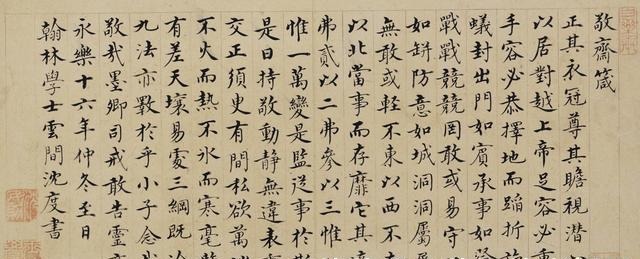 敬齋箴
正其衣冠尊其瞻視潛
以居對越上帝足容必重
手容必恭擇地而蹈折旋
蟻封出門如賓承事如祭
戰戰兢兢罔敢或易守
如缾防意如城洞洞屬
無敢或輕不東以西不
以北當事而存靡它其適
弗貳以二弗參以三惟
惟一萬變是監從事於斯
是日持敬動靜無違表
交正須臾有間私欲萬
不火而熱不冰而寒毫釐
有差天壤易處三綱既淪
九法亦斁於乎小子念哉
敬哉墨卿司戒敢告靈
永樂十六年仲冬至日
翰林學士雲間沈度書